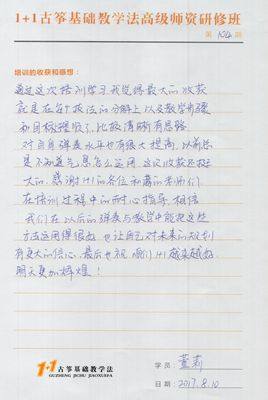 1+1古筝基础教学法高级师资研修班
第 104 期
培训的收获和感想:
通过这次培训学习我觉得最大的收获
就是在每个技法的分解上以及教学步骤
和目标理顺了,比较清晰有思路
对自身弹奏水平也有很大提高,以前总
是不知道气息怎么运用 这次收获还挺
大的,感谢1+1的各位和蔼的老师们
在培训过程中的耐心指导,相信
我们在以后的弹奏与教学中能把这些
方法运用得很好 也让自己对未来的规划
有更大的信心,最后也祝 咱们1+1越来越好
明天更加辉煌!
1+1 古筝基础教学法
GUZHENG JICHU JIAOXUEFA
学员: 董莉
日期: 2017.8.10